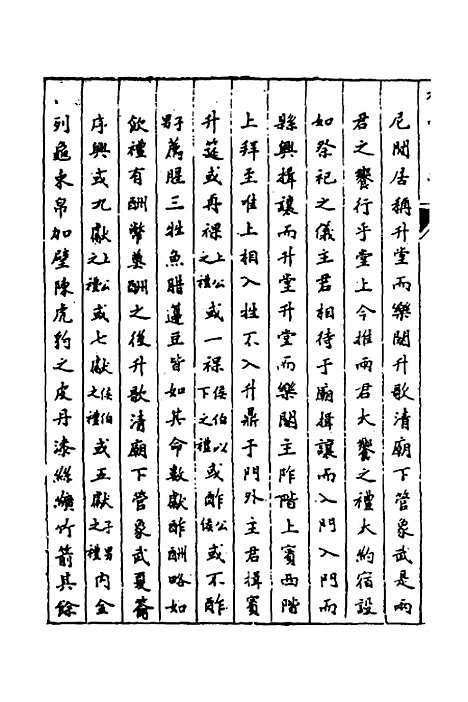 尼閒居稱升堂而樂闋升歌清廟下管象武是兩
君之饗行乎堂上今推兩君大饗之禮大約宿設
如祭祀之儀主君相待于廟揖讓而入門入門而
縣興揖讓而升堂升堂而樂闋主阼階上賓西階
上拜至唯上相入牲不入升鼎于門外主君揖賓
升筵或再祼上公之禮或一祼侯伯以下之禮或酢公侯或不酢
子男薦腥三牲魚腊籩豆皆如其命數獻酢酬略如
飲禮有酬幣奠酬之後升歌清廟下管象武夏籥
序興或九獻上公之禮或七獻侯伯之禮或五獻子男之禮內金
列龜束帛加璧陳虎豹之皮丹漆絲纊竹箭其餘